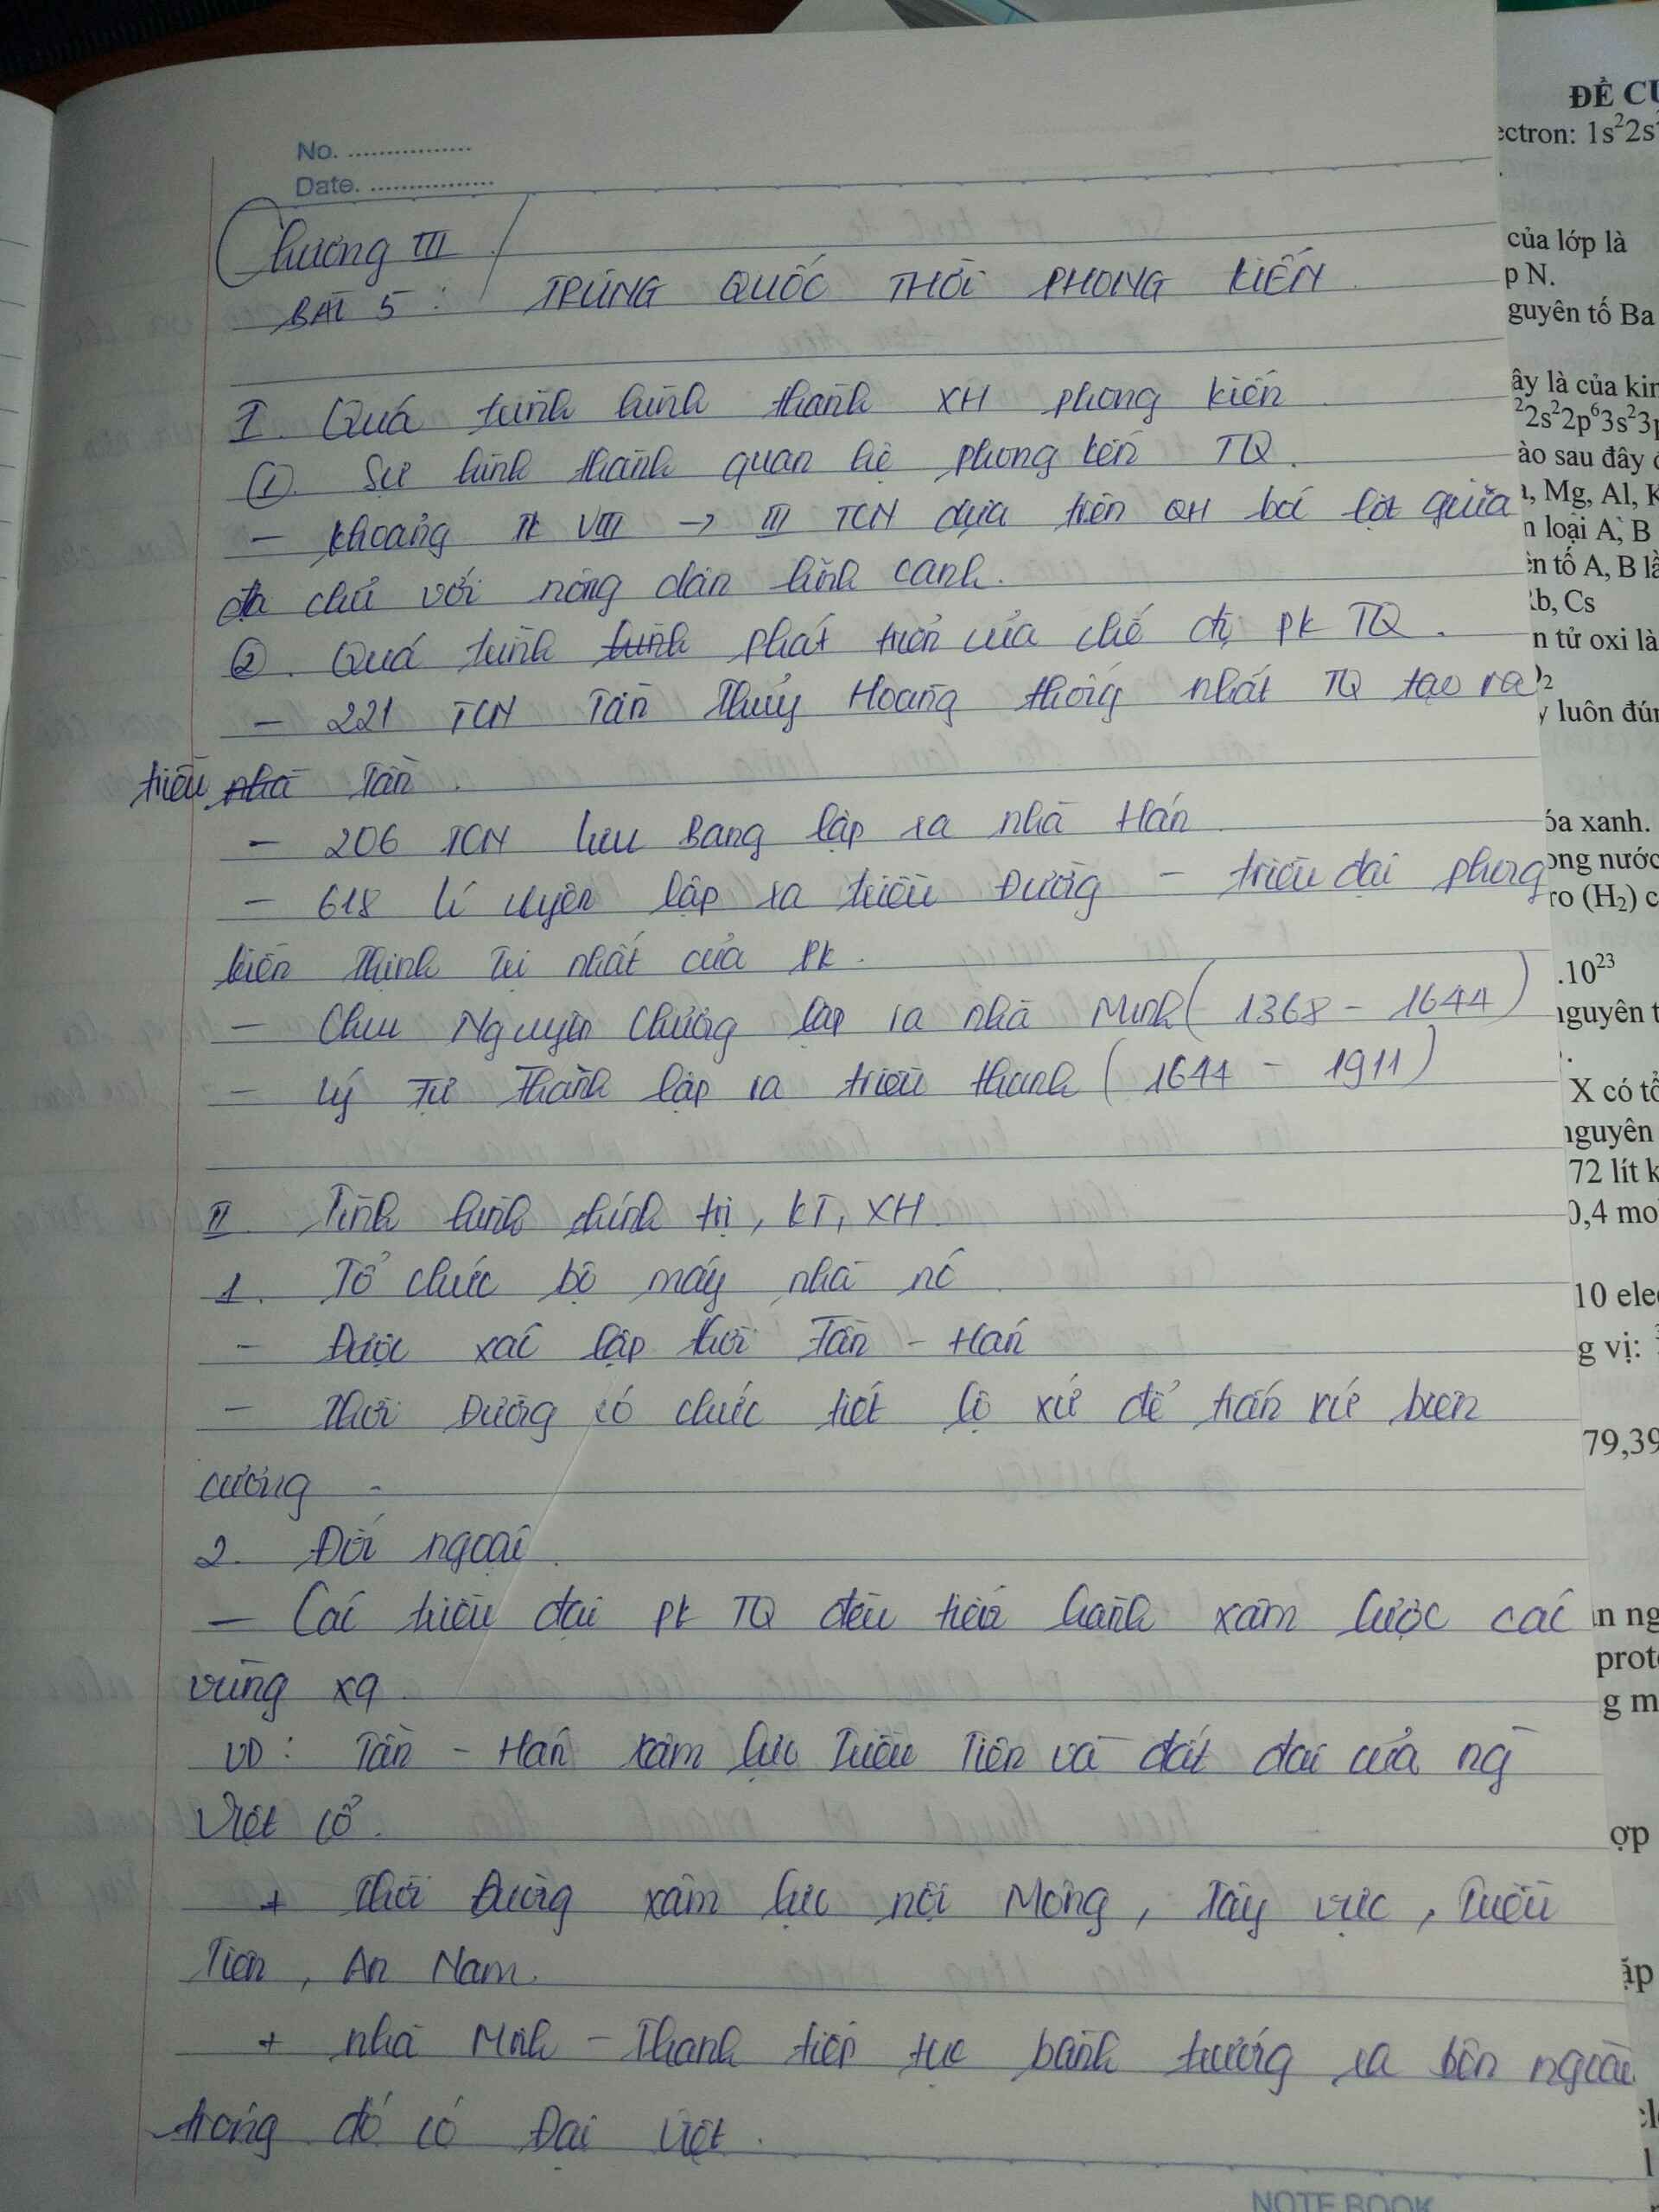 No. ................
Date. ................
Chương III
BÀI 5 : TRUNG QUỐC THỜI PHONG KIẾN
I. Quá trình hình thành XH phong kiến
① Sự hình thành quan hệ phong kến TQ.
- Khoảng TK VIII → III TCN dựa trên QH bóc lột giữa
địa chủ với nông dân lĩnh canh.
② Quá trình hình phát triển của chế độ PK TQ.
- 221 TCN Tần Thủy Hoàng thống nhất TQ tạo ra
triều nhà Tần.
- 206 TCN Lưu Bang lập ra nhà Hán
- 618 Lí Uyên lập ra triều Đường - triều đại phong
kiến thịnh trị nhất của PK.
- Chu Nguyên Chương lập ra nhà Minh (1368 - 1644)
- Lý Tự Thành lập ra triều thanh (1644 - 1911)
II. Tình hình chính trị, KT, XH
1. Tổ chức bộ máy nhà nc
- Được xác lập thời Tần - Hán
- Thời Đường có chức tiết độ xứ để trấn xứ biên
cương.
2. Đối ngoại
- Các triều đại PK TQ đều tiến hành xâm lược các
vùng xq
VD : Tần - Hán xâm lực Triều Tiên và đất đai của ng
Việt cổ.
+ Thời Đường xâm lực nội Mông, Tây vực, Triều
Tiên, An Nam.
+ nhà Minh - Thanh tiếp tục bành trướng ra bên ngoài
trong đó có Đại Việt.
NOTE BOOK
ĐỀ
1s²2s
của lớp là
p N.
guyên tố Ba
ây là của
²2s²2p⁶3s²3p
ào sau đây
Mg, Al, K
loại A, B
tố A, B
Cs
tử oxi là
luôn
xanh.
ong nước
(H₂)
.10²³
X có
72 lít
0,4 mo
10
g vị:
79,39
ợp